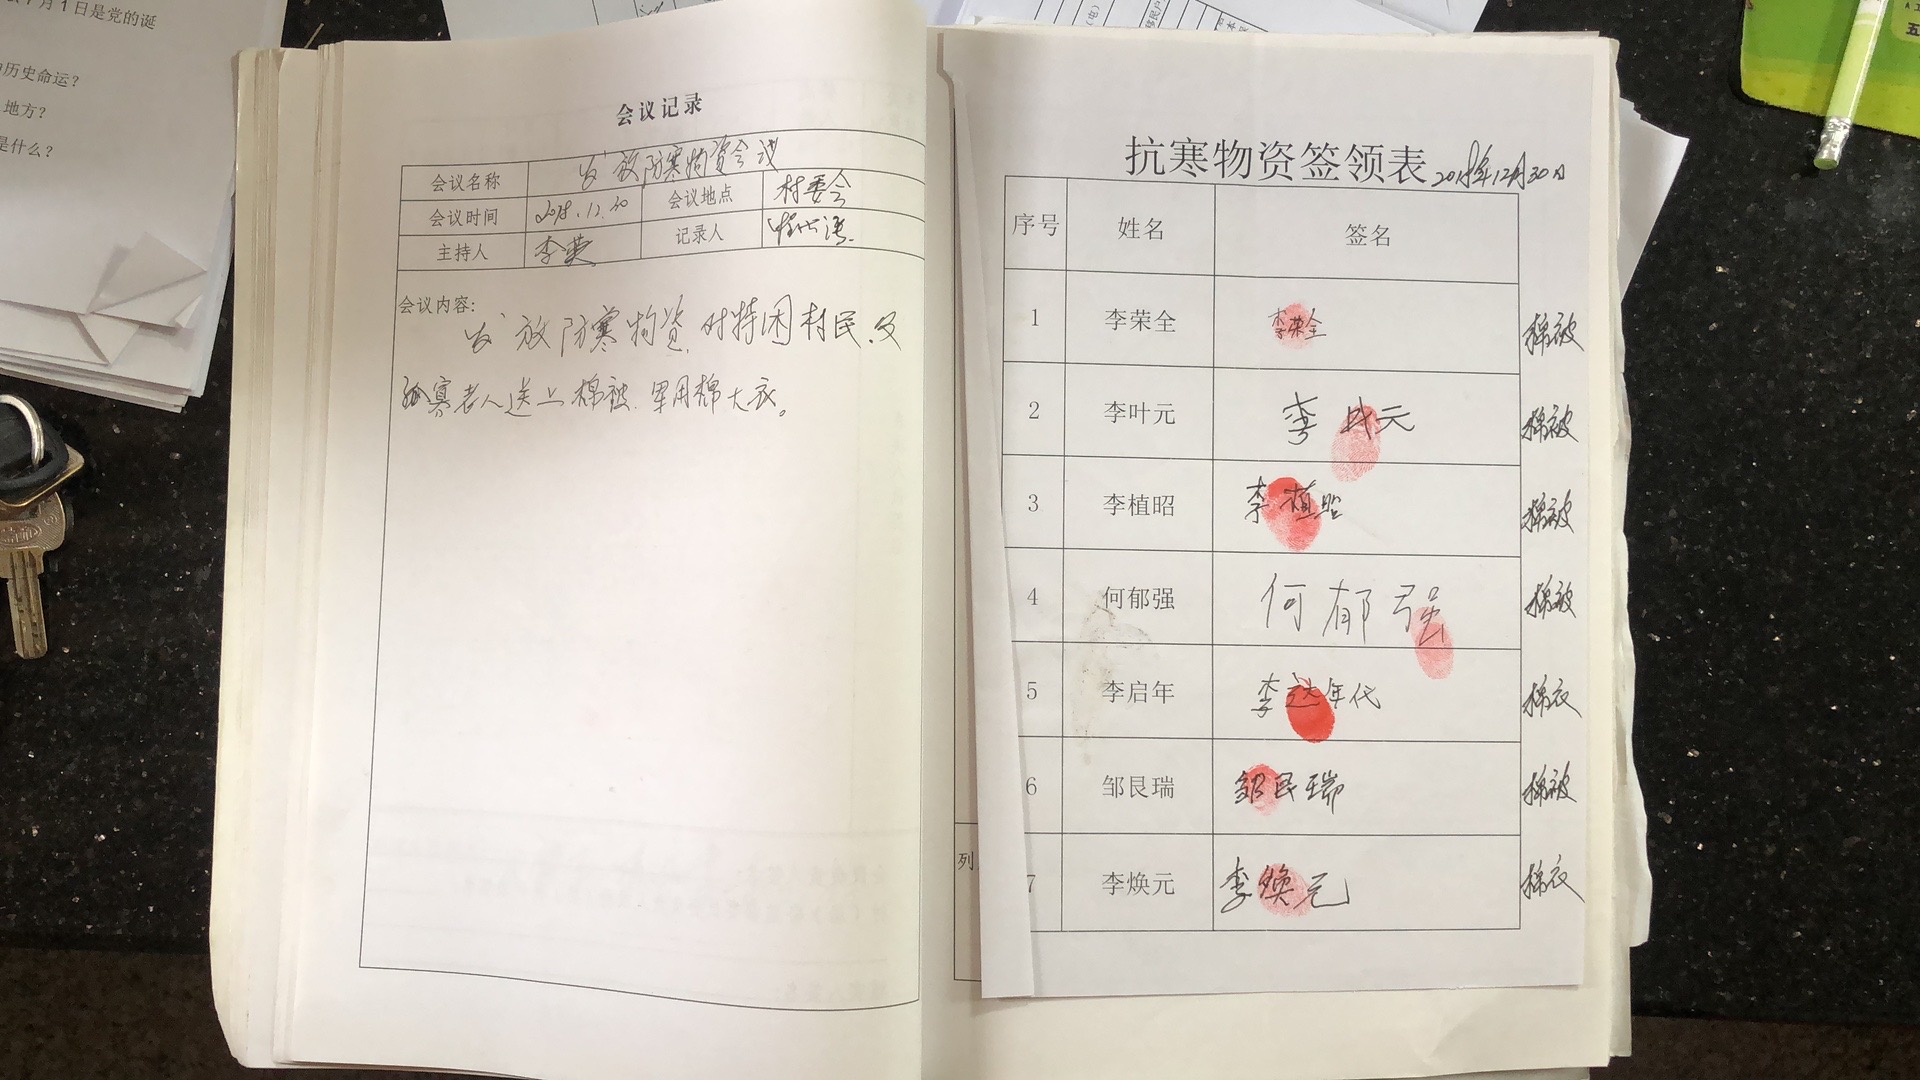 月1日是党的诞
历史命运？
地方？
是什么？
会议记录
会议名称 发放防寒物资会议
会议时间 2018.12.30 会议地点 村委会
主持人 李荣 记录人
会议内容:
发放防寒物资，对特困村民、及
孤寡老人送上棉被、军用棉大衣。
列
抗寒物资签领表 2018年12月30日
序号 姓名 签名
1 李荣全 李荣全 棉被
2 李叶元 李叶元 棉被
3 李植昭 李植昭 棉被
4 何郁强 何郁强 棉被
5 李启年 李达年代 棉衣
6 邹艮瑞 邹民瑞 棉被
7 李焕元 李焕元 棉衣